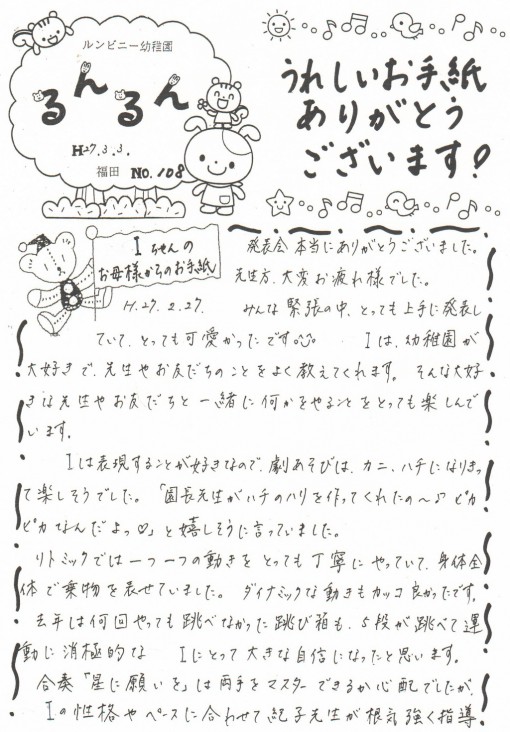 ルンビニー幼稚園
るんるん
H27.3.3.
福田 NO.108
うれしいお手紙
ありがとう
ございます!
Iちゃんの
お母様からのお手紙
H.27.2.27.
発表会本当にありがとうございました。
先生方、大変お疲れ様でした。
みんな緊張の中、とっても上手に発表し
ていて、とっても可愛かったです。 Iは、幼稚園が
大好きで、先生やお友だちのことをよく教えてくれます。そんな大好
きな先生やお友だちと一緒に何かをやることをとっても楽しんで
います。
Iは表現することが好きなので、劇あそびは、カニ、ハチになりきっ
て楽しそうでした。「園長先生がハチのハリを作ってくれたの〜♪ピカ
ピカなんだよっ♡」と嬉しそうに言っていました。
リトミックでは一つ一つの動きをとっても丁寧にやっていて、身体全
体で乗物を表せていました。ダイナミックな動きもカッコ良かったです。
去年は何回やっても跳べなかった跳び箱も、5段が跳べて運
動に消極的な Iにとって大きな自信になったと思います。
合奏「星に願いを」は両手をマスターできるか心配でしたが、
Iの性格やペースに合わせて紀子先生が根気強く指導